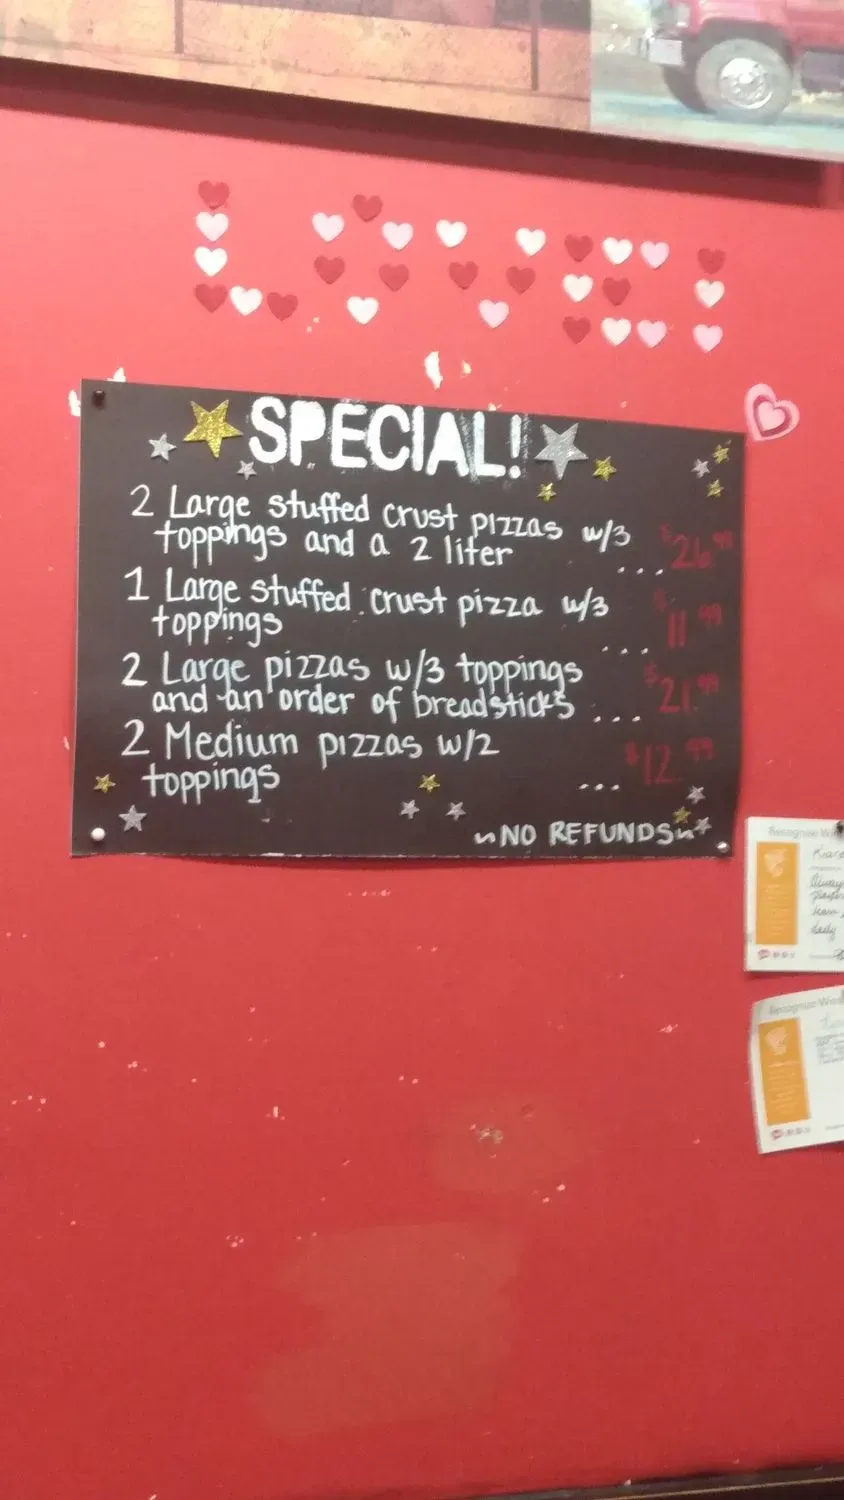 LOVE!
SPECIAL!
2 Large stuffed crust pizzas w/3
toppings and a 2 liter ... $26.99
1 Large stuffed crust pizza w/3
toppings ... $11.99
2 Large pizzas w/3 toppings
and an order of breadsticks ... $21.99
2 Medium pizzas w/2
toppings ... $12.99
~NO REFUNDS~
Recognize
team
daily
Recognize